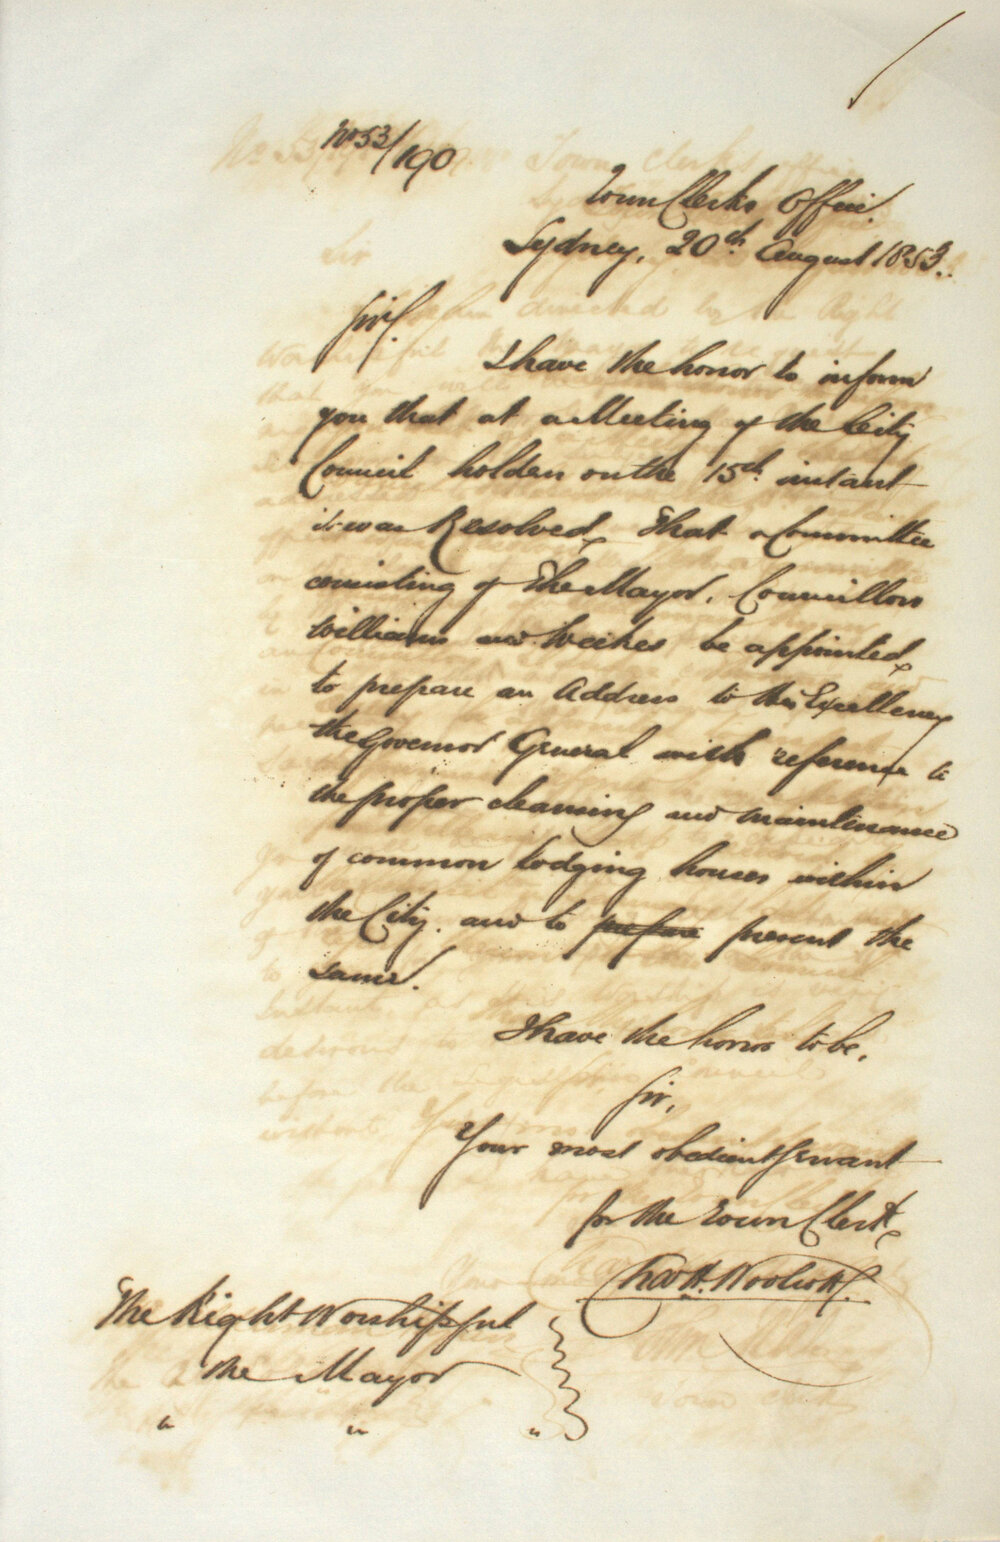 No 53/190
Town Clerks Office
Sydney, 20th August 1853.
Sir,
I have the honor to inform
you that at a Meeting of the City
Council holden on the 15th instant
it was Resolved, That a Committee
consisting of The Mayor, Councillors
Williams and Weekes be appointed,
to prepare an Address to His Excellency
the Governor General with reference to
the proper cleansing and maintenance
of common lodging houses within
the City, and to prepare present the
same.
I have the honor to be,
Sir,
Your most obedient Servant
for the Town Clerk,
Chas H. Woolcott.
The Right Worshipful
the Mayor
" " "